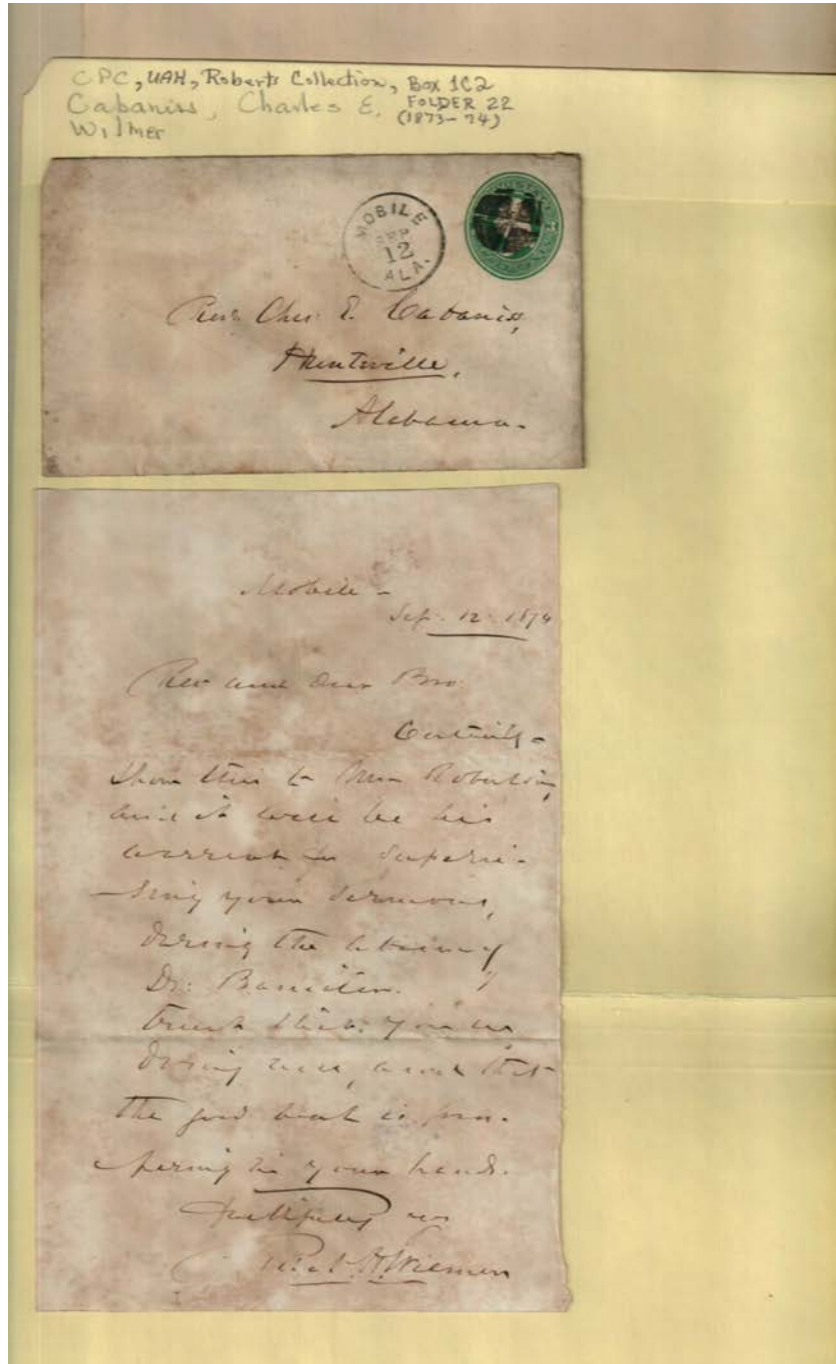 CPC, UAH, Roberts Collection, Box 1C2
Cabaniss, Charles E. FOLDER 22
(1873-74)
Wilmer
MOBILE
SEP
12
ALA.
Rev. Chas. E. Cabaniss,
Huntsville,
Alabama.
Mobile -
Sep. 12. 1874
Rev and dear Bro.
Certainly -
Show this to Mr. Robertson,
and it will be his
warrant for supervi-
-sing your sermons,
during the absence of
Dr. Banister.
trust that you are
doing well, and that
the good work is pros-
pering in your hands.
Faithfully yrs
Wilmer